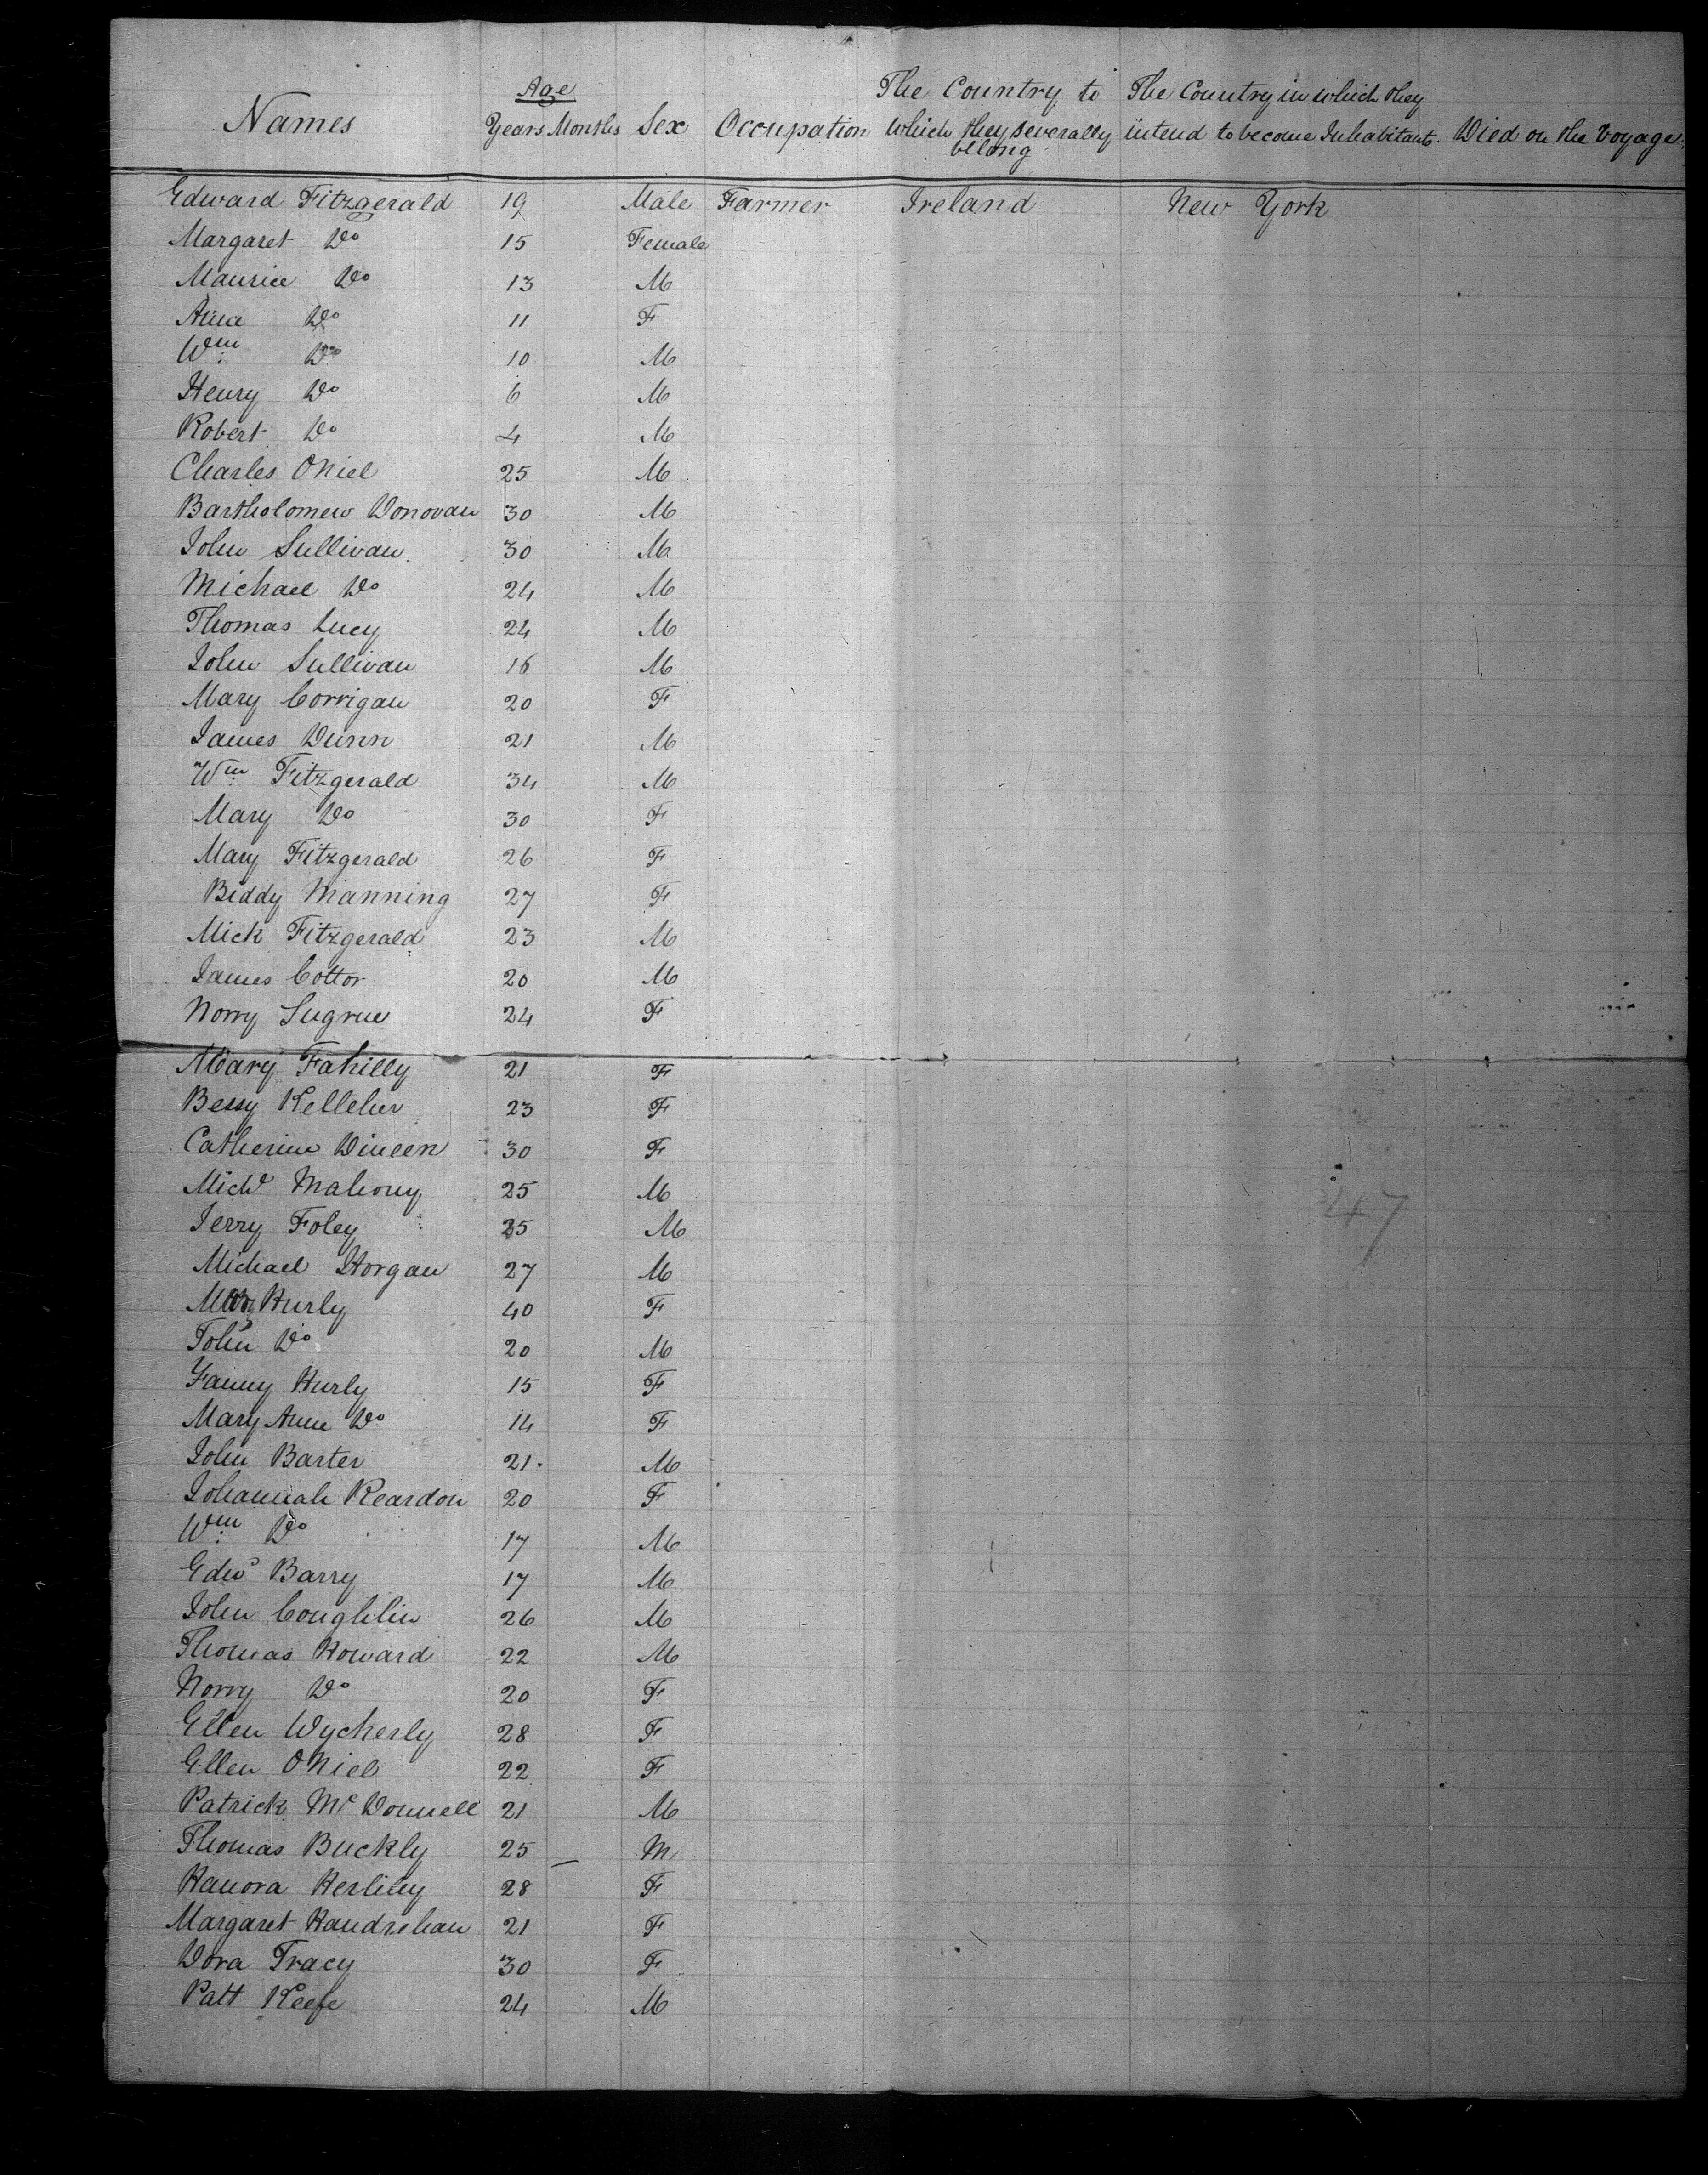 Names Age Years Months Sex Occupation The Country to which they severally belong The Country in which they intend to become Inhabitants. Died on the Voyage.
Edward Fitzgerald 19 Male Farmer Ireland New York
Margaret Do 15 Female
Maurice Do 13 M
Anna Do 11 F
Wm. Do 10 M
Henry Do 6 M
Robert Do 4 M
Charles ONiel 25 M
Bartholomew Donovan 30 M
John Sullivan 30 M
Michael Do 24 M
Thomas Lucy 24 M
John Sullivan 16 M
Mary Corrigan 20 F
James Dunn 21 M
Wm Fitzgerald 34 M
Mary Do 30 F
Mary Fitzgerald 26 F
Biddy Manning 27 F
Mick Fitzgerald 23 M
James Cottor 20 M
Norry Sugrue 24 F
Mary Fahilly 21 F
Bessy Kelleher 23 F
Catherine Dineen 30 F
Michl Mahony 25 M
Jerry Foley 25 M
Michael Horgan 27 M
Mary Hurly 40 F
John Do 20 M
Fanny Hurly 15 F
Mary Anne Do 14 F
John Barter 21. M
Johannah Reardon 20 F
Wm. Do 17 M
Edwd Barry 17 M
John Coughlin 26 M
Thomas Howard 22 M
Norry Do 20 F
Ellen Wycherly 28 F
Ellen ONiel 22 F
Patrick Mc Donnell 21 M
Thomas Buckly 25 — M
Hanora Herlihy 28 F
Margaret Handrehan 21 F
Dora Tracy 30 F
Patt Keefe 24 M
47